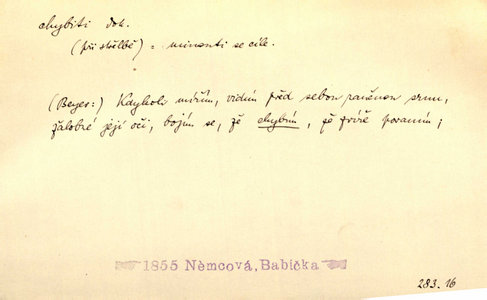 chybiti dok.
(při střelbě) = minouti se cíle.
(Beyer:) Kdykoli mířím, vidím před sebou raněnou srnu,
žalobné její oči, bojím se, že chybím, že zvíře poraním;
1855 Němcová, Babička
283.16